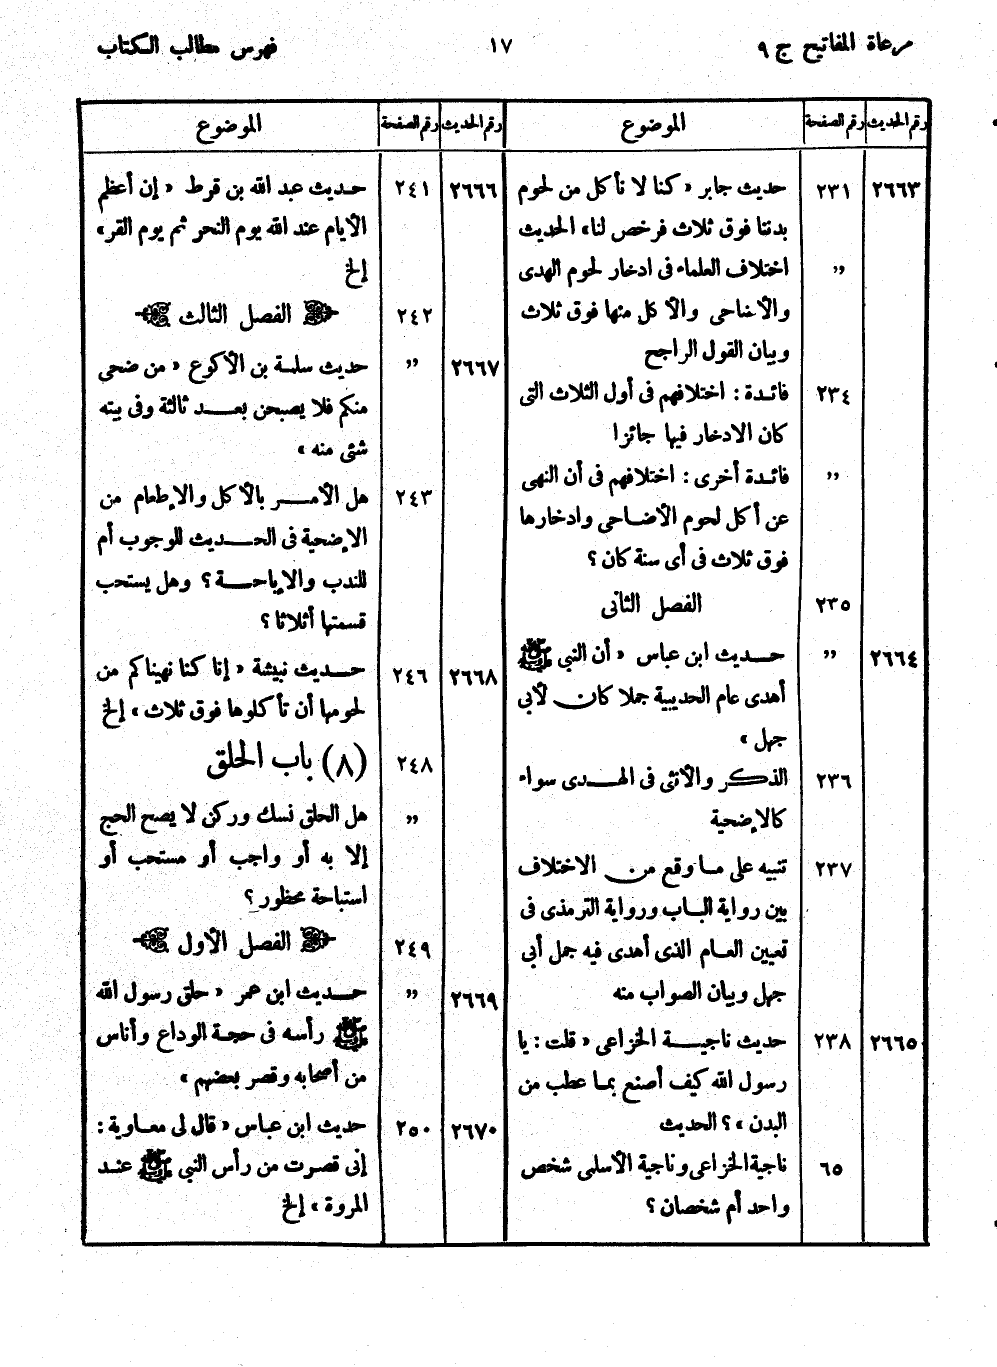 مرعاة المفاتيح ج ٩
١٧
فهرس مطالب الكتاب
رقم الحديث رقم الصفحة الموضوع
٢٦٦٣ ٢٣١ حديث جابر « كنا لا نأكل من لحوم
بدننا فوق ثلاث فرخص لنا» الحديث
,, اختلاف العلماء فى ادخار لحوم الهدى
والأضاحى والأكل منها فوق ثلاث
وبيان القول الراجح
٢٣٤ فائدة : اختلافهم فى أول الثلاث التى
كان الادخار فيها جائزا
,, فائدة أخرى : اختلافهم فى أن النهى
عن أكل لحوم الأضاحى وادخارها
فوق ثلاث فى أى سنة كان ؟
٢٣٥ الفصل الثانى
٢٦٦٤ ,, حديث ابن عباس « أن النبى ﷺ
أهدى عام الحديبية جملا كان لأبى
جهل »
٢٣٦ الذكر والأنثى فى الهدى سواء
كالإضحية
٢٣٧ تنبيه على ما وقع من الاختلاف
بين رواية الباب ورواية الترمذى فى
تعيين العام الذى أهدى فيه جمل أبى
جهل وبيان الصواب منه
٢٦٦٥ ٢٣٨ حديث ناجية الخزاعى « قلت : يا
رسول الله كيف أصنع بما عطب من
البدن » ؟ الحديث
٦٥ ناجية الخزاعى وناجية الأسلمى شخص
واحد أم شخصان ؟
رقم الحديث رقم الصفحة الموضوع
٢٦٦٦ ٢٤١ حديث عبد الله بن قرط « إن أعظم
الأيام عند الله يوم النحر ثم يوم القر»
إلخ
٢٤٢ الفصل الثالث
٢٦٦٧ ,, حديث سلمة بن الأكوع « من ضحى
منكم فلا يصبحن بعد ثالثة وفى بيته
شئى منه »
٢٤٣ هل الأمر بالأكل والإطعام من
الإضحية فى الحديث للوجوب أم
للندب والإباحة ؟ وهل يستحب
قسمتها أثلاثا ؟
٢٦٦٨ ٢٤٦ حديث نبيشة « إنا كنا نهيناكم من
لحومها أن تأكلوها فوق ثلاث » إلخ
٢٤٨ (٨) باب الحلق
,, هل الحلق نسك وركن لا يصح الحج
إلا به أو واجب أو مستحب أو
استباحة محظور ؟
٢٤٩ الفصل الأول
٢٦٦٩ ,, حديث ابن عمر « حلق رسول الله
ﷺ رأسه فى حجة الوداع وأناس
من أصحابه وقصر بعضهم »
٢٦٧٠ ٢٥٠ حديث ابن عباس « قال لى معاوية :
إنى قصرت من رأس النبى ﷺ عند
المروة » إلخ